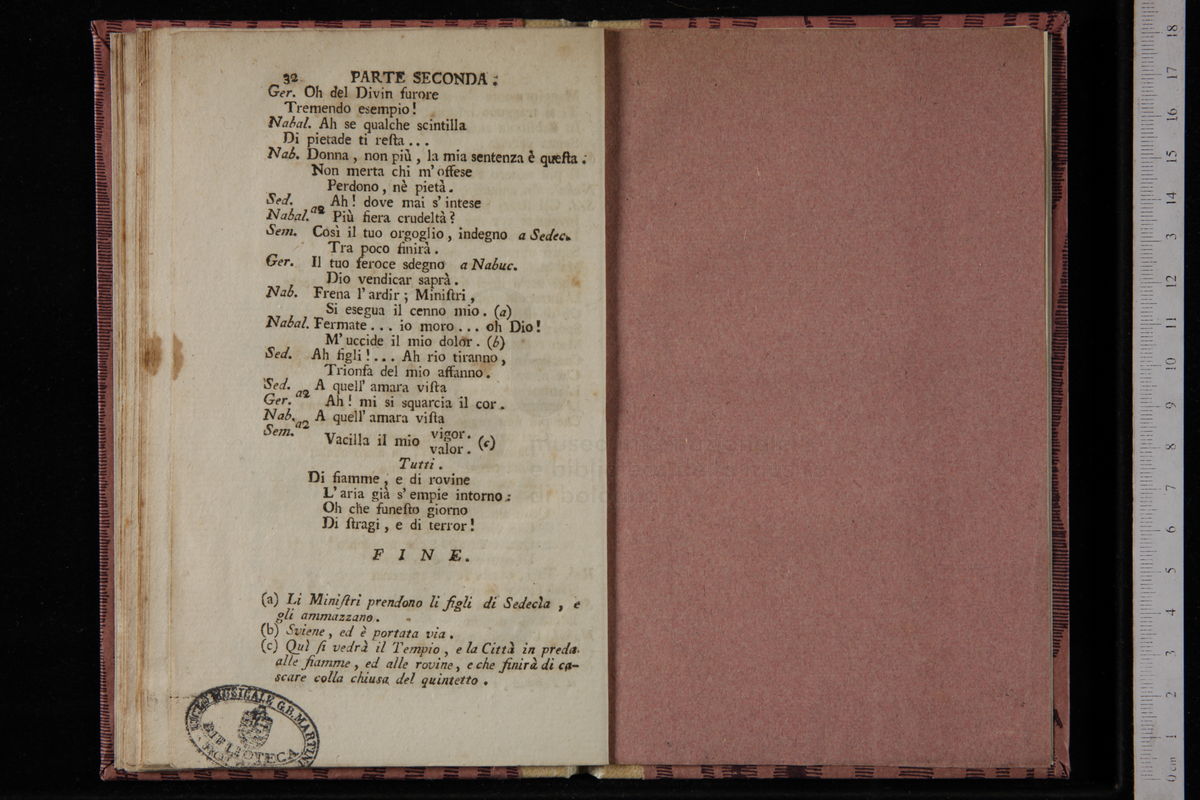 32 PARTE SECONDA.
Ger. Oh del Divin furore
Tremendo esempio!
Nabal. Ah se qualche scintilla
Di pietade ti reſta...
Nab. Donna, non più, la mia sentenza è queſta.
Non merta chi m'offese
Perdono, nè pietà.
Sed. Ah! dove mai s'intese
Nabal. a2 Più fiera crudeltà?
Sem. Così il tuo orgoglio, indegno a Sedec.
Tra poco finirà.
Ger. Il tuo feroce sdegno a Nabuc.
Dio vendicar saprà.
Nab. Frena l'ardir; Miniſtri,
Si esegua il cenno mio. (a)
Nabal. Fermate... io moro... oh Dio!
M'uccide il mio dolor. (b)
Sed. Ah figli!... Ah rio tiranno,
Trionfa del mio affanno.
Sed. A quell'amara viſta
Ger. a2 Ah! mi si squarcia il cor.
Nab. A quell'amara viſta
Sem. a2 Vacilla il mio vigor. (c)
valor.
Tutti.
Di fiamme, e di rovine
L'aria già s'empie intorno:
Oh che funeſto giorno
Di ſtragi, e di terror!
FINE.
(a) Li Miniſtri prendono li figli di Sedecìa, e
gli ammazzano.
(b) Sviene, ed è portata via.
(c) Quì ſi vedrà il Tempio, e la Città in preda
alle fiamme, ed alle rovine, e che finirà di ca-
scare colla chiusa del quintetto.
MUSICALE G.B. MARTINI
BIBLIOTECA
museo
0 cm 1 2 3 4 5 6 7 8 9 10 11 12 13 14 15 16 17 18